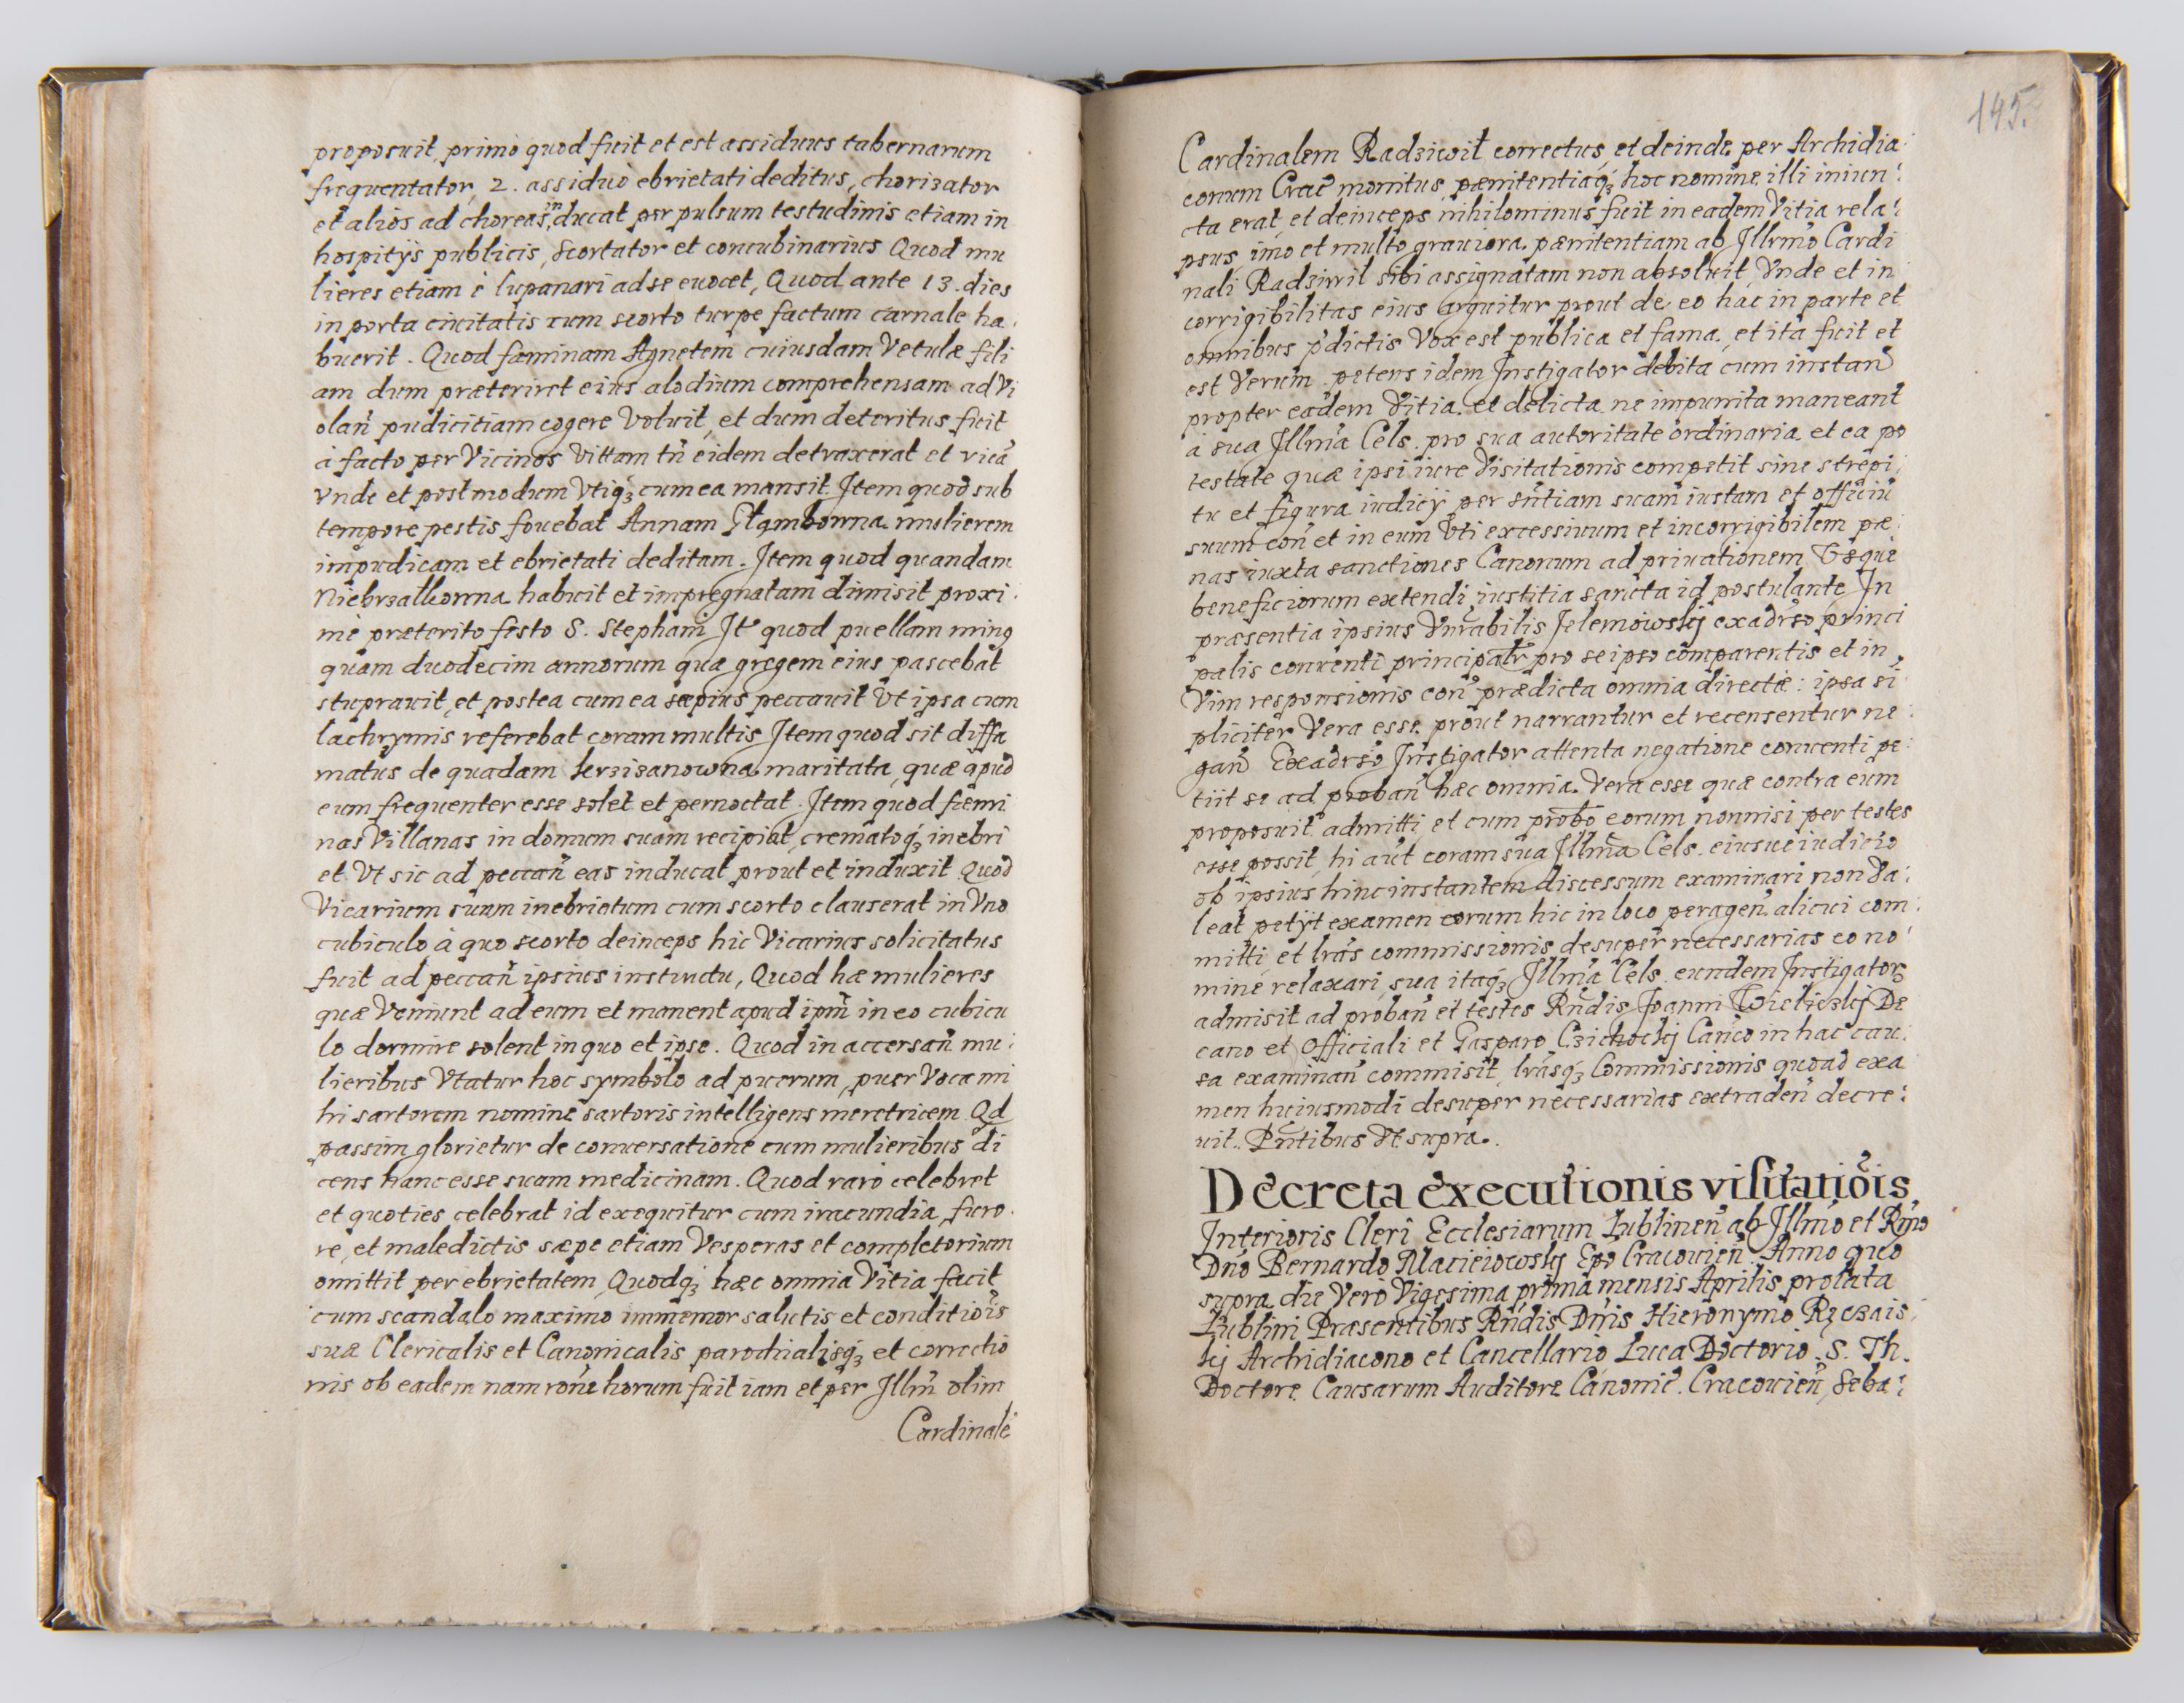 proposuit primo quod fuit et est assiduus tabernarum
frequentator, 2. assiduò ebrietati deditus, chorizator
et alios ad choreas inducat per pulsum testudinis etiam in
hospitijs publicis, scortator et concubinarius Quod mu
lieres etiam è lupanari ad se euocet, Quod ante 13. dies
in porta ciuitatis cum scorto turpe factum carnale ha:
buerit. Quod fæminam Agnetem cuiusdam Vetulæ fili
am dum præteriret eius alodium comprehensam ad Vi
olan̄ pudicitiam cogere Voluit, et dum deteritus fuit
à facto per Vicinos Vittam tn̄ eidem detraxerat et
Vnde et postmodum Vtiqꝫ cum ea mansit Item quod sub
tempore pestis fouebat Annam mulierem
impudicam et ebrietati deditam. Item quod quandam
habuit et impregnatam dimisit proxi:
mè præterito festo S. Stephani It̄ quod puellam minq
quam duodecim annorum quæ gregem eius pascebat
stuprauit, et postea cum ea sæpius peccauit Vt ipsa cum
lachrymis referebat coram multis Item quod sit diffa
matus de quadam maritata, quæ apud
eum frequenter esse solet et pernoctat. Item quod fæmi
nas Villanas in domum suam recipiat, crematoqꝫ inebri
et Vt sic ad peccan̄ eas inducat prout et induxit Quod
Vicarium suum inebriatum cum scorto clauserat in Vno
cubiculo à quo scorto deinceps hic Vicarius solicitatus
fuit ad peccan̄ ipsius instinctu, Quod hæ mulieres
quæ Veniunt ad eum et manent apud ipm̄ in eo cubicu
lo dormire solent in quo et ipse. Quod in accersan̄ mu:
lieribus Vtatur hoc symbolo ad puerum, puer Voca mi
hi sartorem nomine sartoris intelligens meretricem Qd
passim glorietur de conuersatione cum mulieribus di
cens hanc esse suam medicinam. Quod raro celebret
et quoties celebrat id exequitur cum iracundia, furo
re, et maledictis sæpe etiam Vesperas et completorium
omittit per ebrietatem, Quodqꝫ hæc omnia Vitia facit
cum scandalo maximo immemor salutis et conditiōis
suæ Clericalis et Canonicalis parochialisqꝫ et correctio
nis ob eadem nam rōne horum fuit iam et per Illm̄ olim
Cardinalē
145.
Cardinalem Radziwil correctus, et deinde per Archidia:
conum Crac̄ monitus, pænitentiaqꝫ hoc nomine illi iniun:
cta erat, et deinceps nihilominus fuit in eadem Vitia rela:
psus, imo et multo grauiora. pænitentiam ab Illmo Cardi
nali Radziwil sibi assignatam non absoluit, Vnde et in
corrigibilitas eius arguitur prout de eo hac in parte et
omnibus p̄dictis Vox est publica et fama, et ita fuit et
est Verum. petens idem Instigator debita cum instan̄
propter eadem Vitia et delicta ne impunita maneant
à sua Illma Cels. pro sua autoritate ordinaria et ea po
testate quæ ipsi iure Visitationis competit sine strepi:
tu et figura iudicij per sn̄tiam suam iustam et officiū
suum con̄ et in eum Vti excessiuum et incorrigibilem pæ:
nas iuxta sanctiones Canonum ad priuationem Vsque
beneficiorum extendi iustitia sancta id postulante In
præsentia ipsius Vnrabilis Jelemowskj ex adrso princi
palis conuenti principalr̄ pro se ipso comparentis et in
Vim responsionis con̄ prædicta omnia directæ: ipsa si
pliciter Vera esse prout narrantur et recensentur ne:
gan̄ Ex adrso Instigator attenta negatione conuenti pe:
tiit se ad proban̄ hæc omnia Vera esse quæ contra eum
proposuit admitti, et cum probō eorum nonnisi per testes
esse possit, hi aut̄ coram sua Illma Cels. eiusue iudicio
ob ipsius hinc instantem discessum examinari non Va:
leat petijt examen eorum hic in loco peragen̄ alicui com:
mitti, et lrās commissionis desuper necessarias eo no:
mine relaxari, sua itaqꝫ Illma Cels. eundem Instigatorē
admisit ad proban̄ et testes Rndis Joanni Wieliczkj De
cano et Officiali et Gasparo Czichockj Canco in hac cau:
sa examinan̄ commisit, lrāsqꝫ Commissionis quoad exa
men huiusmodi desuper necessarias extraden̄ decre:
uit. Pn̄tibus Vt supra.
Decreta executionis visitatiōis
Interioris Cleri Ecclesiarum Lublinen̄ ab Illmo et Rmo
Dno Bernardo Macieiowskj Epo Cracouien̄. Anno quo
supra die Vero Vigesima prima mensis Aprilis prolata
Lublini Præsentibus Rndis Dnis Hieronymo Ręczais:
kj Archidiacono et Cancellario, Luca Doctorio. S. Th.
Doctore Causarum Auditore Canonic̄. Cracouien̄, Seba: